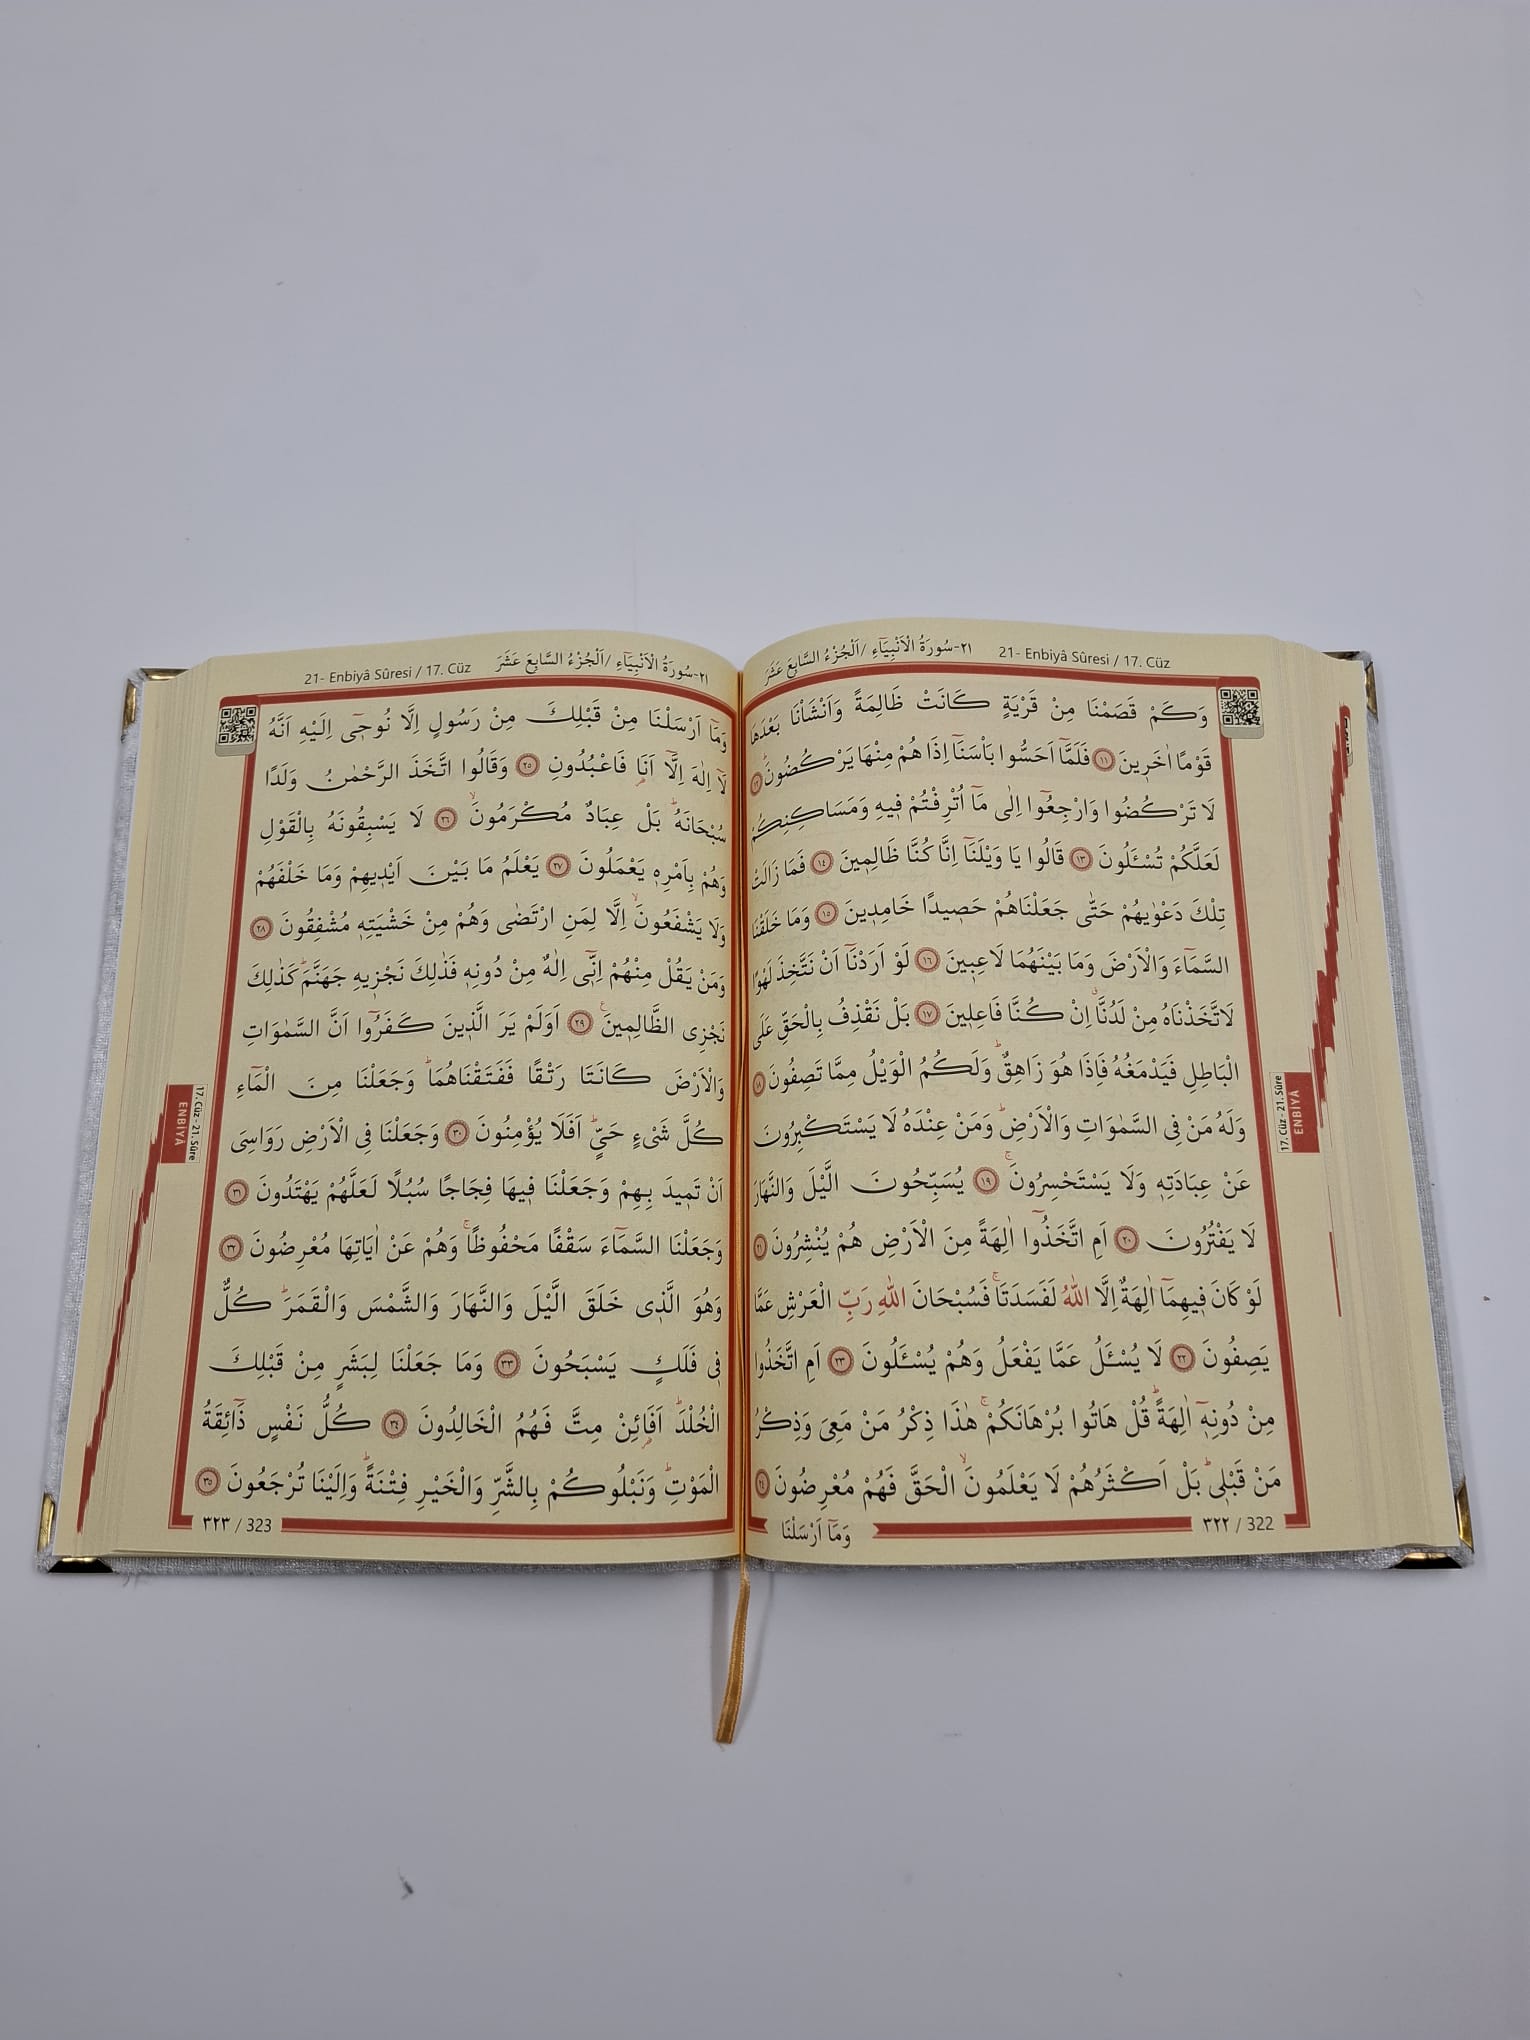 21- Enbiyâ Sûresi / 17. Cüz ٢١-سُورَةُ الْاَنْبِيَٓاءِ /اَلْجُزْءُ السَّابِعَ عَشَرَ
وَكَمْ قَصَمْنَا مِنْ قَرْيَةٍ كَانَتْ ظَالِمَةً وَاَنْشَأْنَا بَعْدَهَا
قَوْمًا اٰخَرٖينَ ﴿١١﴾ فَلَمَّٓا اَحَسُّوا بَأْسَنَٓا اِذَا هُمْ مِنْهَا يَرْكُضُونَؕ ﴿١٢﴾
لَا تَرْكُضُوا وَارْجِعُٓوا اِلٰى مَٓا اُتْرِفْتُمْ فٖيهِ وَمَسَاكِنِكُمْ
لَعَلَّكُمْ تُسْـَٔلُونَ ﴿١٣﴾ قَالُوا يَا وَيْلَنَٓا اِنَّا كُنَّا ظَالِمٖينَ ﴿١٤﴾ فَمَا زَالَتْ
تِلْكَ دَعْوٰيهُمْ حَتّٰى جَعَلْنَاهُمْ حَصٖيدًا خَامِدٖينَ ﴿١٥﴾ وَمَا خَلَقْنَا
السَّمَٓاءَ وَالْاَرْضَ وَمَا بَيْنَهُمَا لَاعِبٖينَ ﴿١٦﴾ لَوْ اَرَدْنَٓا اَنْ نَتَّخِذَ لَهْوًا
لَاتَّخَذْنَاهُ مِنْ لَدُنَّاۗ اِنْ كُنَّا فَاعِلٖينَ ﴿١٧﴾ بَلْ نَقْذِفُ بِالْحَقِّ عَلَى
الْبَاطِلِ فَيَدْمَغُهُ فَاِذَا هُوَ زَاهِقٌؕ وَلَكُمُ الْوَيْلُ مِمَّا تَصِفُونَ ﴿١٨﴾
وَلَهُ مَنْ فِى السَّمٰوَاتِ وَالْاَرْضِؕ وَمَنْ عِنْدَهُ لَا يَسْتَكْبِرُونَ
عَنْ عِبَادَتِهٖ وَلَا يَسْتَحْسِرُونَۚ ﴿١٩﴾ يُسَبِّحُونَ الَّيْلَ وَالنَّهَارَ
لَا يَفْتُرُونَ ﴿٢٠﴾ اَمِ اتَّخَذُٓوا اٰلِهَةً مِنَ الْاَرْضِ هُمْ يُنْشِرُونَ ﴿٢١﴾
لَوْ كَانَ فٖيهِمَٓا اٰلِهَةٌ اِلَّا اللّٰهُ لَفَسَدَتَاۚ فَسُبْحَانَ اللّٰهِ رَبِّ الْعَرْشِ عَمَّا
يَصِفُونَ ﴿٢٢﴾ لَا يُسْـَٔلُ عَمَّا يَفْعَلُ وَهُمْ يُسْـَٔلُونَ ﴿٢٣﴾ اَمِ اتَّخَذُوا
مِنْ دُونِهٖٓ اٰلِهَةًؕ قُلْ هَاتُوا بُرْهَانَكُمْۚ هٰذَا ذِكْرُ مَنْ مَعِىَ وَذِكْرُ
مَنْ قَبْلٖىؕ بَلْ اَكْثَرُهُمْ لَا يَعْلَمُونَۙ الْحَقَّ فَهُمْ مُعْرِضُونَ ﴿٢٤﴾
وَمَٓا اَرْسَلْنَا
٣٢٢ / 322
17. Cüz - 21. Sûre
ENBİYÂ
21- Enbiyâ Sûresi / 17. Cüz ٢١-سُورَةُ الْاَنْبِيَٓاءِ /اَلْجُزْءُ السَّابِعَ عَشَرَ
وَمَٓا اَرْسَلْنَا مِنْ قَبْلِكَ مِنْ رَسُولٍ اِلَّا نُوحٖٓى اِلَيْهِ اَنَّهُ
لَٓا اِلٰهَ اِلَّٓا اَنَا فَاعْبُدُونِ ﴿٢٥﴾ وَقَالُوا اتَّخَذَ الرَّحْمٰنُ وَلَدًا
سُبْحَانَهُؕ بَلْ عِبَادٌ مُكْرَمُونَۙ ﴿٢٦﴾ لَا يَسْبِقُونَهُ بِالْقَوْلِ
وَهُمْ بِاَمْرِهٖ يَعْمَلُونَ ﴿٢٧﴾ يَعْلَمُ مَا بَيْنَ اَيْدٖيهِمْ وَمَا خَلْفَهُمْ
وَلَا يَشْفَعُونَۙ اِلَّا لِمَنِ ارْتَضٰى وَهُمْ مِنْ خَشْيَتِهٖ مُشْفِقُونَ ﴿٢٨﴾
وَمَنْ يَقُلْ مِنْهُمْ اِنّٖٓى اِلٰهٌ مِنْ دُونِهٖ فَذٰلِكَ نَجْزٖيهِ جَهَنَّمَؕ كَذٰلِكَ
نَجْزِى الظَّالِمٖينَࣖ ﴿٢٩﴾ اَوَلَمْ يَرَ الَّذٖينَ كَفَرُٓوا اَنَّ السَّمٰوَاتِ
وَالْاَرْضَ كَانَتَا رَتْقًا فَفَتَقْنَاهُمَاؕ وَجَعَلْنَا مِنَ الْمَٓاءِ
كُلَّ شَىْءٍ حَىٍّؕ اَفَلَا يُؤْمِنُونَ ﴿٣٠﴾ وَجَعَلْنَا فِى الْاَرْضِ رَوَاسِىَ
اَنْ تَمٖيدَ بِهِمْ وَجَعَلْنَا فٖيهَا فِجَاجًا سُبُلًا لَعَلَّهُمْ يَهْتَدُونَ ﴿٣١﴾
وَجَعَلْنَا السَّمَٓاءَ سَقْفًا مَحْفُوظًاۚ وَهُمْ عَنْ اٰيَاتِهَا مُعْرِضُونَ ﴿٣٢﴾
وَهُوَ الَّذٖى خَلَقَ الَّيْلَ وَالنَّهَارَ وَالشَّمْسَ وَالْقَمَرَؕ كُلٌّ
فٖى فَلَكٍ يَسْبَحُونَ ﴿٣٣﴾ وَمَا جَعَلْنَا لِبَشَرٍ مِنْ قَبْلِكَ
الْخُلْدَؕ اَفَا۬ئِنْ مِتَّ فَهُمُ الْخَالِدُونَ ﴿٣٤﴾ كُلُّ نَفْسٍ ذَٓائِقَةُ
الْمَوْتِؕ وَنَبْلُوكُمْ بِالشَّرِّ وَالْخَيْرِ فِتْنَةًؕ وَاِلَيْنَا تُرْجَعُونَ ﴿٣٥﴾
٣٢٣ / 323
17. Cüz - 21. Sûre
ENBİYÂ